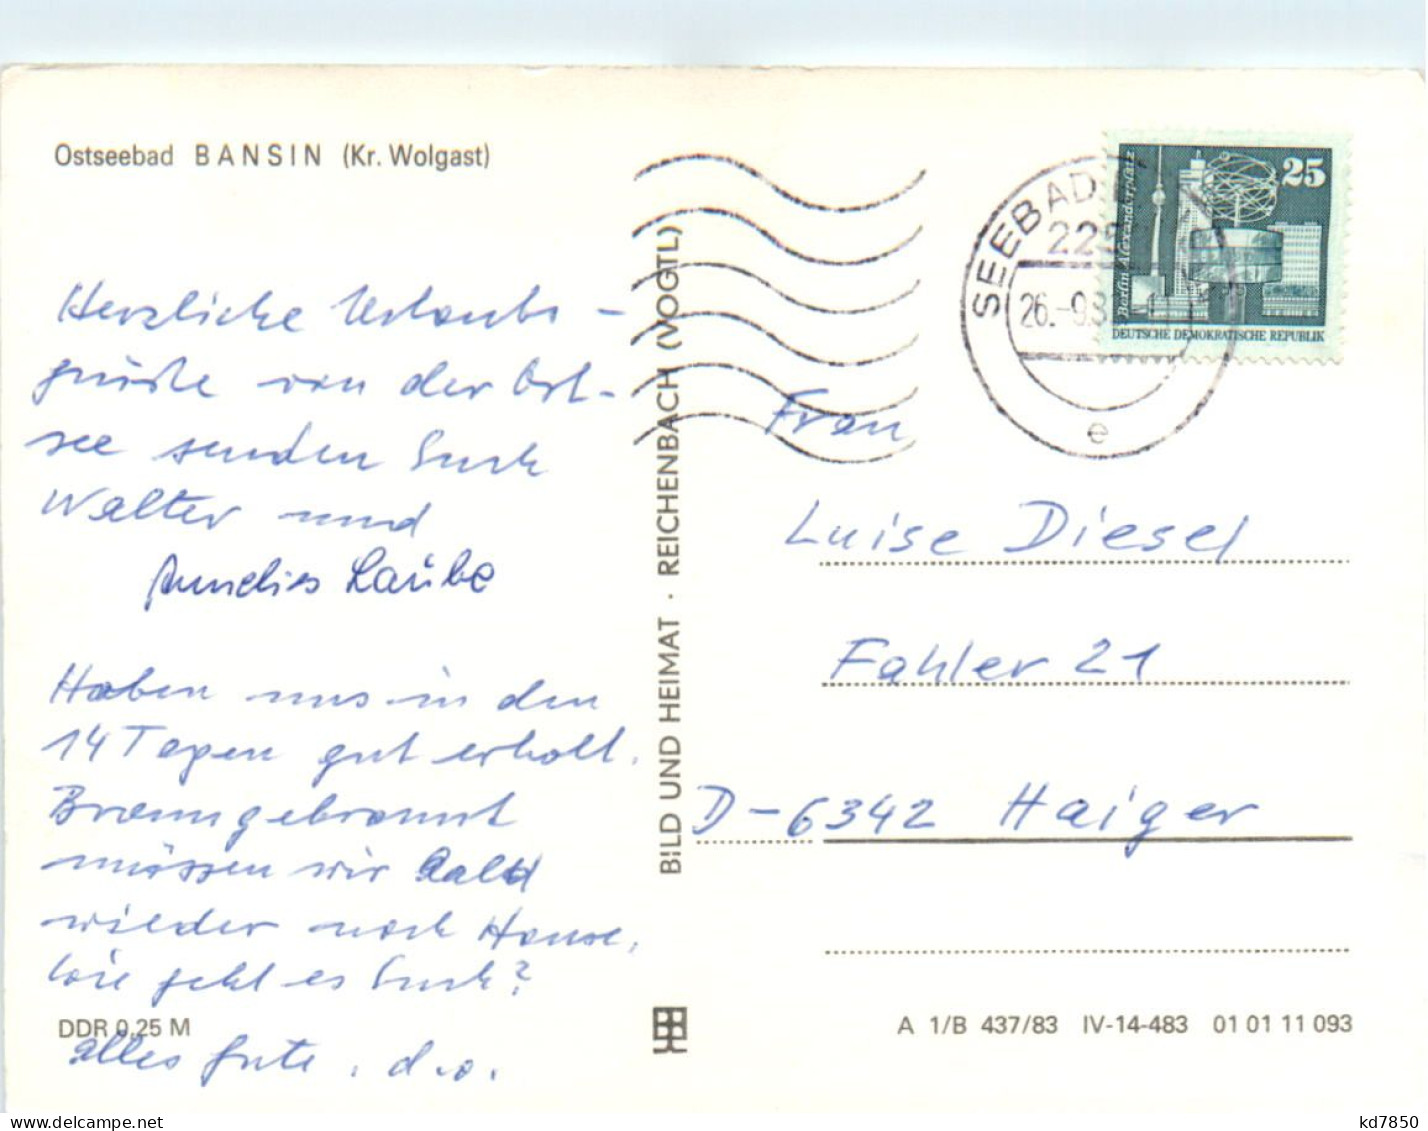 Ostseebad BANSIN (Kr. Wolgast)
Herzliche Urlaubs-
grüße von der Ost-
see senden Euch
Walter und
Annelies Laube
Haben uns in den
14 Tagen gut erholt.
Braungebrannt
müssen wir bald
wieder nach Hause.
Wie geht es Euch?
alles Gute. d.o.
DDR 0,25 M
BILD UND HEIMAT · REICHENBACH (VOGTL)
SEEBAD
26.-9.8
e
Berlin Alexanderplatz
25
DEUTSCHE DEMOKRATISCHE REPUBLIK
Frau
Luise Diesel
Fahler 21
D-6342 Haiger
A 1/B 437/83 IV-14-483 01 01 11 093
www.delcampe.net
kd7850